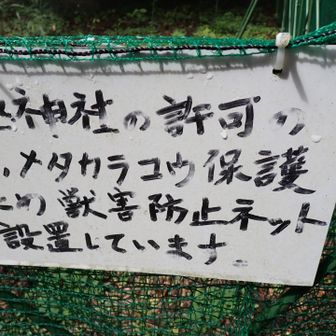 神社の許可の
メタカラコウ保護
め獣害防止ネット
設置しています